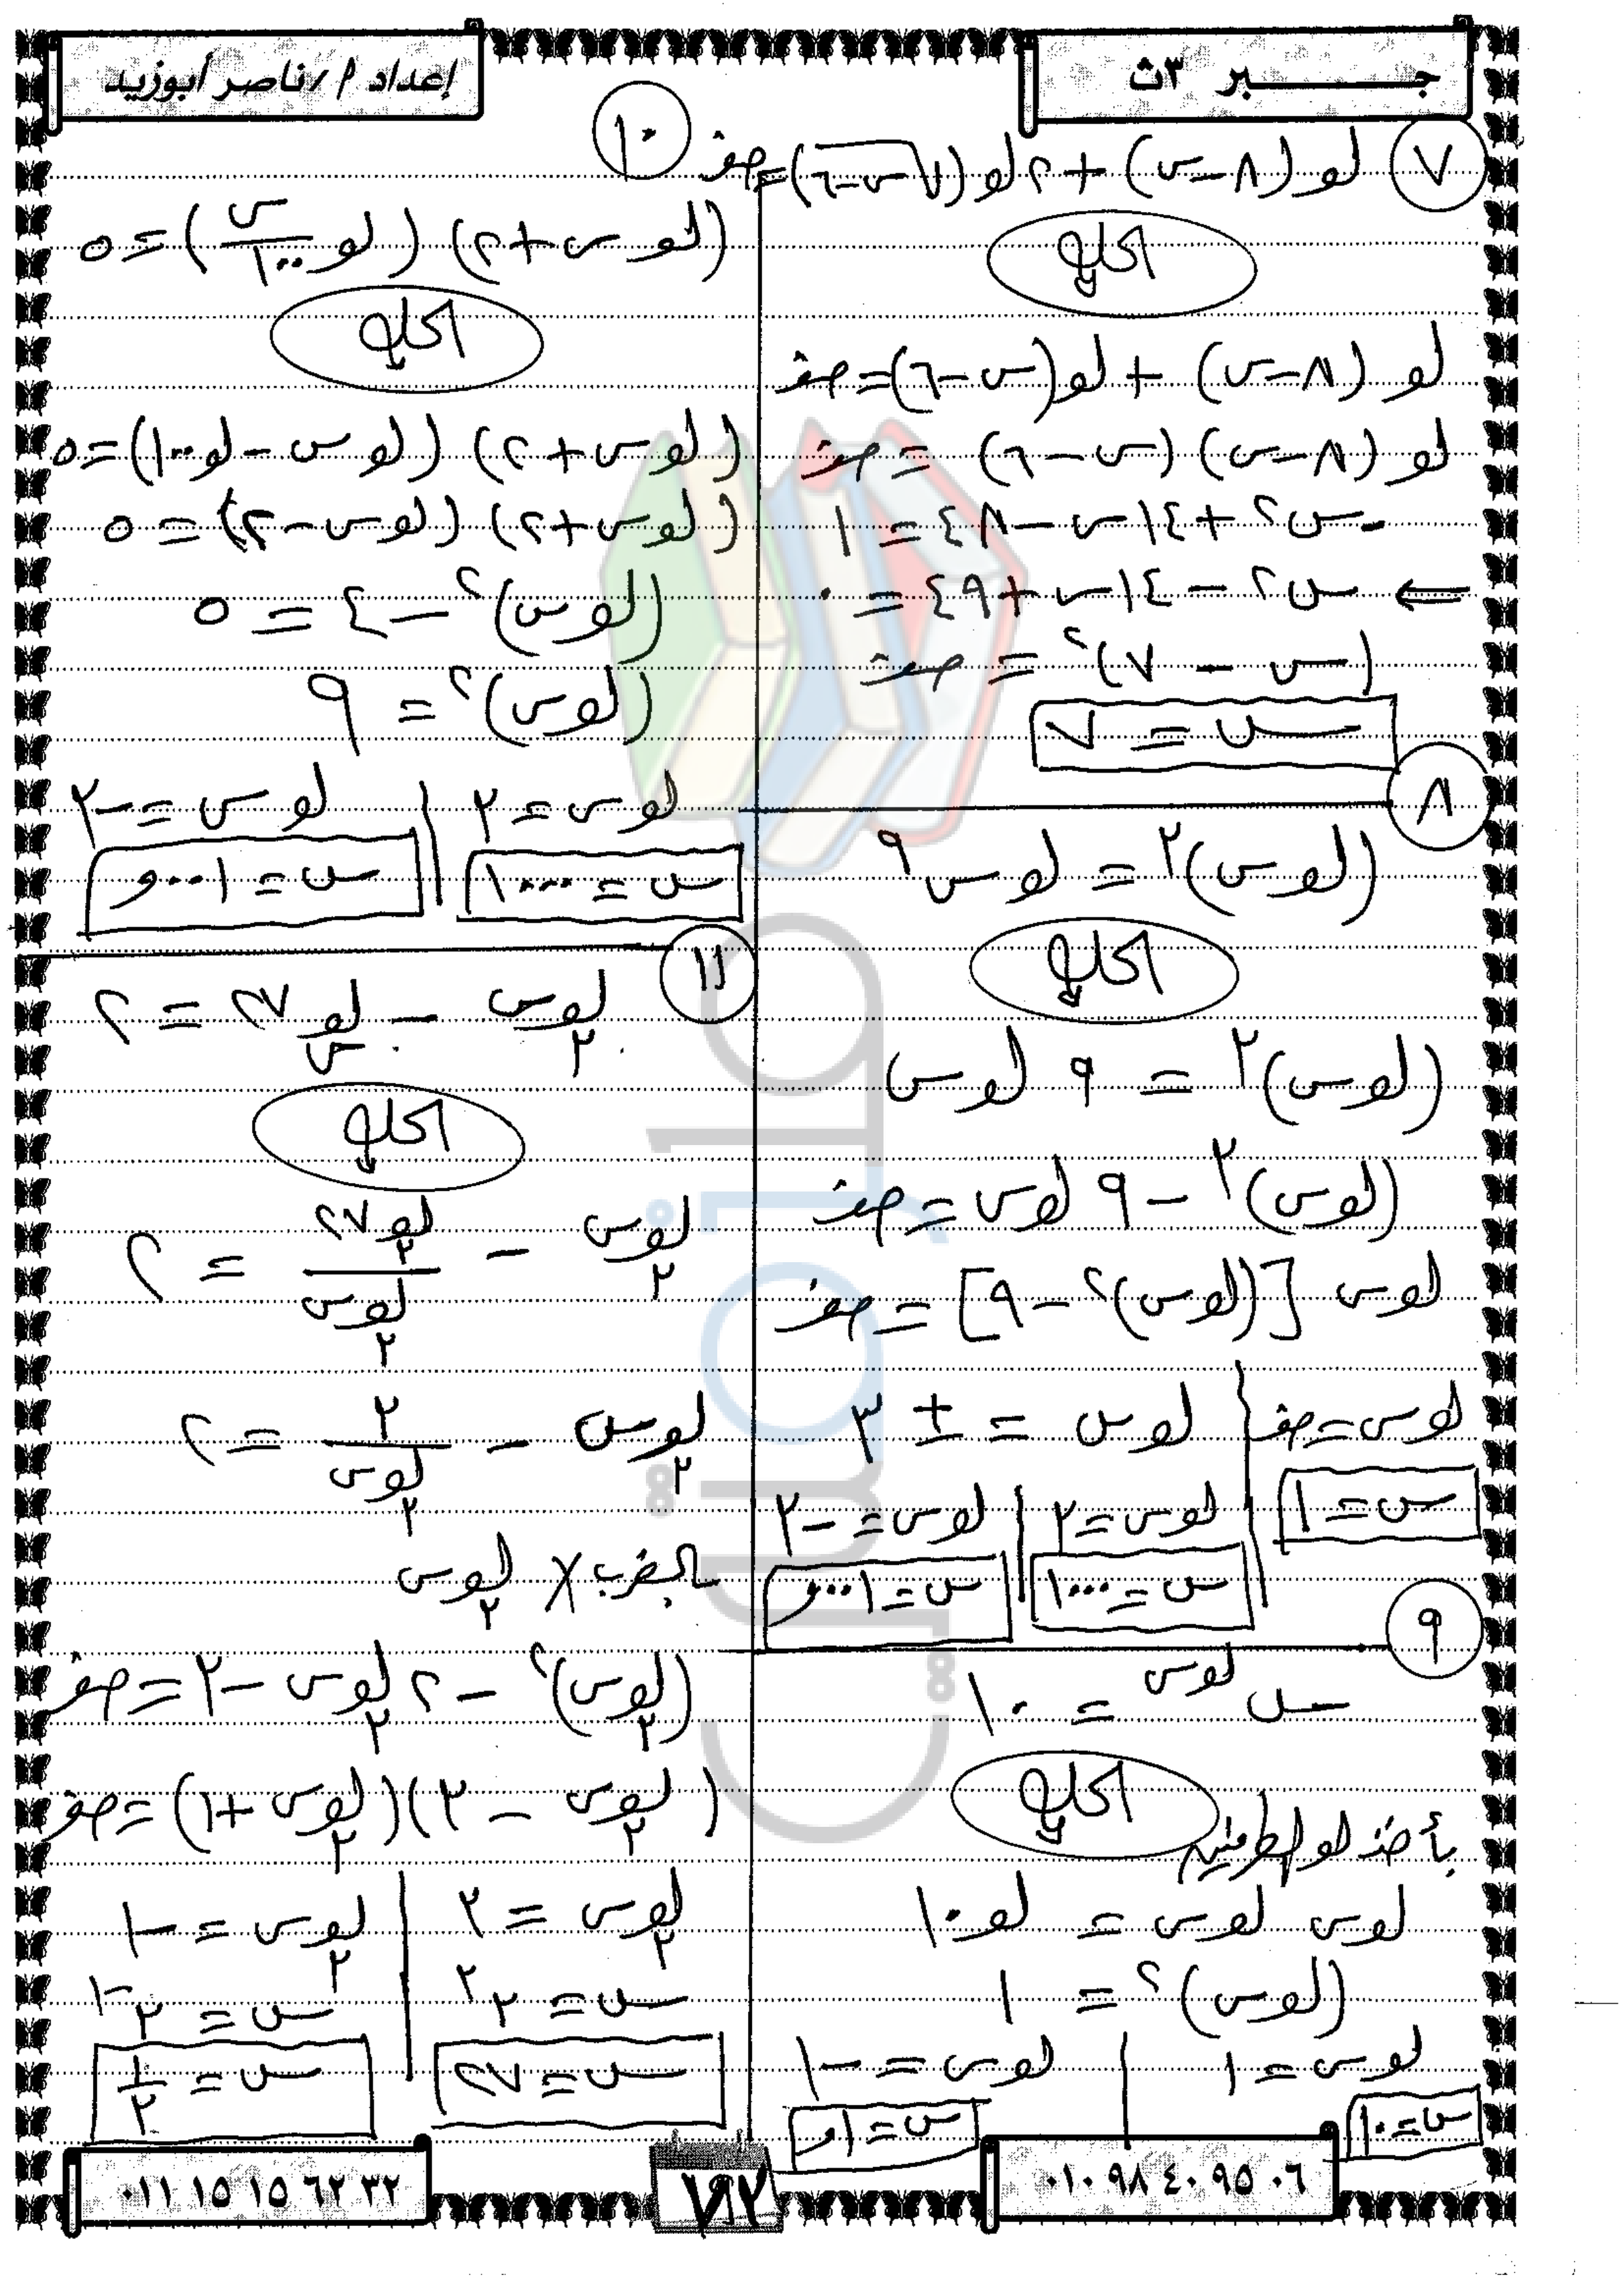 جـــــبر ٣ث
إعداد أ/ناصر أبوزيد
٧ لو (٨-س) + ٢ لو (√(س-٦)) = صفر
الحل
لو (٨-س) + لو (س-٦) = صفر
لو (٨-س) (س-٦) = صفر
-س٢ + ١٤س - ٤٨ = ١
⇐ س٢ - ١٤س + ٤٩ = ٠
(س - ٧)٢ = صفر
س = ٧
٨
(لو س)٣ = لو س٩
الحل
(لو س)٣ = ٩ لو س
(لو س)٣ - ٩ لو س = صفر
لو س [(لو س)٢ - ٩] = صفر
لو س = صفر | لو س = ± ٣
س = ١ | لو س = ٣ | لو س = -٣
س = ١٠٠٠ | س = ٠٠١و
٩
س لو س = ١٠
الحل
بأخذ لو الطرفين
لو س لو س = لو ١٠
(لو س)٢ = ١
لو س = ١ | لو س = -١
س = ١٠ | س = ١و
١٠
(لو س + ٢) (لو س/١٠٠) = ٥
الحل
(لو س + ٢) (لو س - لو ١٠٠) = ٥
(لو س + ٢) (لو س - ٢) = ٥
(لو س)٢ - ٤ = ٥
(لو س)٢ = ٩
لو س = ٣ | لو س = -٣
س = ١٠٠٠ | س = ٠٠١و
١١
لو٣ س - لوس ٢٧ = ٢
الحل
لو٣ س - لو٣ ٢٧ / لو٣ س = ٢
لو٣ س - ٣ / لو٣ س = ٢
بالضرب × لو٣ س
(لو٣ س)٢ - ٢ لو٣ س - ٣ = صفر
(لو٣ س - ٣)(لو٣ س + ١) = صفر
لو٣ س = ٣ | لو٣ س = -١
س = ٣٣ | س = ٣-١
س = ٢٧ | س = ١/٣
٠١٠ ٩٨ ٤٠ ٩٥ ٠٦
٠١١ ١٥ ١٥ ٦٢ ٣٢